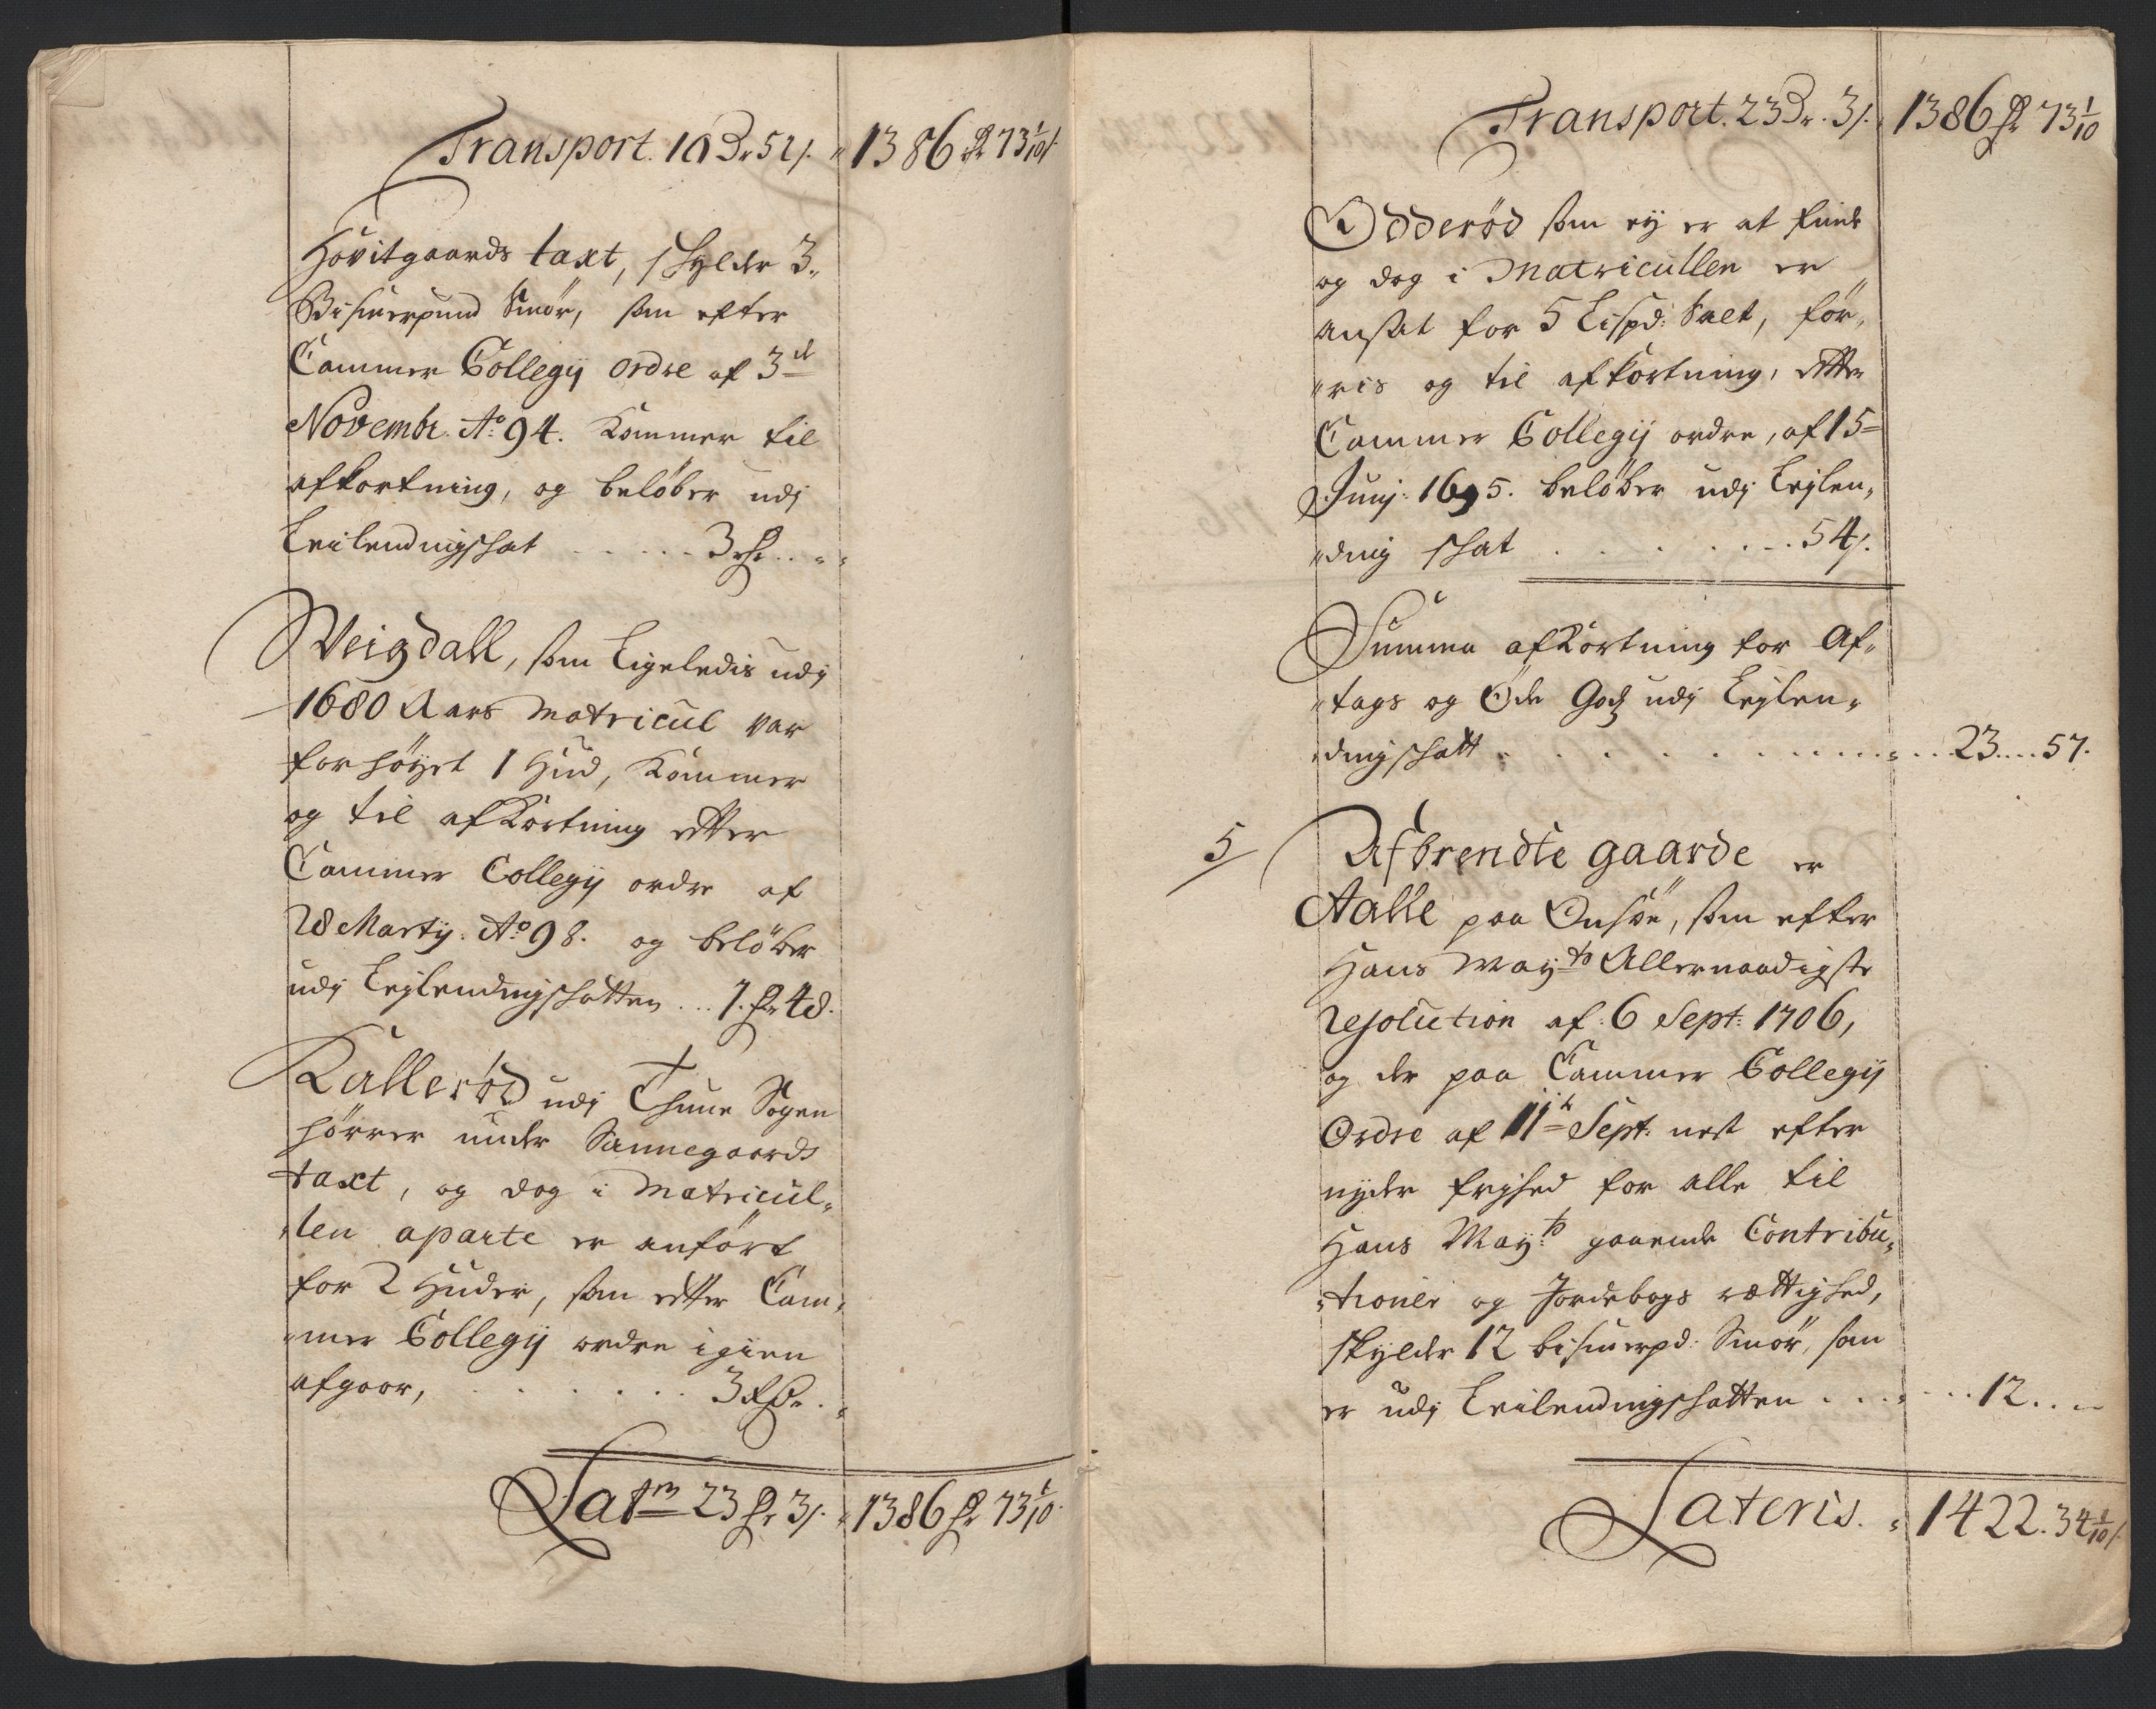 Transport. 16 Dr 51 s. 1386 Dr 73 1/10 s.
Hovitgaards taxt, skylder 3
Bismerpund Smör, som efter
Cammer Collegij ordre af 3de
Novembr. Ao 94. kommer til
afkortning, og belöber udj
Leilendingschat - - - - - 3 rdr. - -
Weigdall, som Ligeledis udj
1680 Aars Matricul var
forhöyet 1 Hud, kommer
og til afkortning effter
Cammer Collegij ordre af
28 Martij. Ao 98. og belöber
udj Lejlendingschatten ... 1. Dr 48.
Kalleröd udj Thune Sogen
hörrer under Sannegaards
taxt, og dog i Matricul„
„len aparte er anfört
for 2 Huder, som effter Cam„
„mer Collegij ordre igien
afgaar, . . . . . . 3 Rdr. .
Latr 23 Dr 3 s. 1386 Dr 73 1/10.
Transport. 23 Dr. 3 s. 1386 Dr 73 1/10
Odderöd som ej er at finde
og dog i Matricullen er
ansat for 5 Lispd: Salt, för„
„ris og til afkortning, effter
Cammer Collegij ordre, af 15
Junij: 1695. belöber udj Lejlen„
„ding schat . . . . . . 54 s.
Summa afkortning for Af„
„tags og Öde Godz udj Lejlen„
„dingschatt . . . . . . . . . 23....57.
5/ Afbrendte gaarde er
Aalle paa Onsöe, som efter
Hans Mayts Allernaadigste
resolution af 6 Sept: 1706,
og der paa Cammer Collegij
Ordre af 11te Sept: nest efter
nyder frihed for alle til
Hans Mayts gaaende Contribu„
„tioner og Jordebogs rættighed,
skylder 12 bismerpd: Smör, som
er udj Leilendingschatten . . . . . . 12. . „
Lateris. 1422. 34 1/10 s.